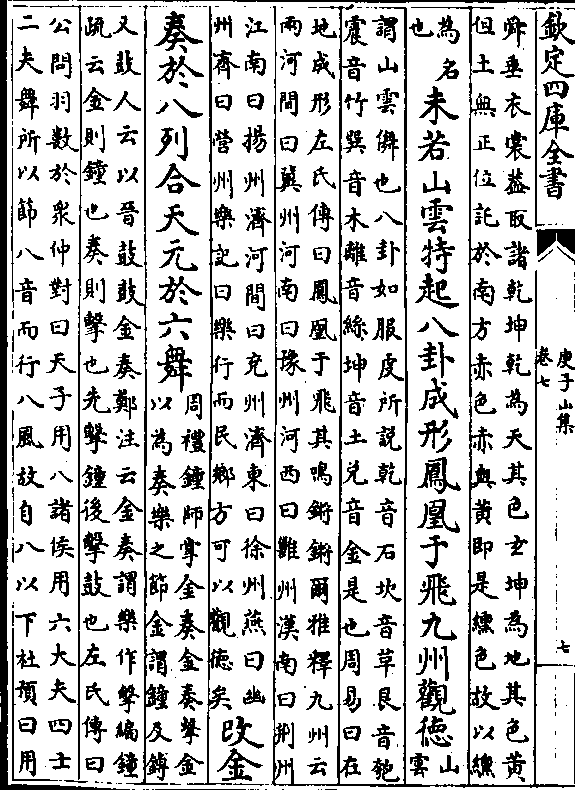 欽定四庫全書
庾子山集
卷七
七
舜垂衣裳蓋取諸乾坤乾為天其色𤣥坤為地其色黄
但土無正位託於南方赤色赤與黄即是纁色故以纁
為名
也
未若山雲特起八卦成形鳳凰于飛九州觀徳
山
雲
謂山雲僻也八卦如服虔所説乾音石坎音草艮音匏
震音竹巽音木離音絲坤音土兑音金是也周易曰在
地成形左氏傳曰鳳凰于飛其鳴鏘鏘爾雅釋九州云
兩河間曰冀州河南曰豫州河西曰雝州漢南曰荆州
江南曰揚州濟河間曰兖州濟東曰徐州燕曰幽
州齊曰營州樂記曰樂行而民鄉方可以觀徳矣
改金
奏於八列合天元於六舞
周禮鐘師掌金奏金奏擊金
以為奏樂之節金謂鐘及鎛
又鼓人云以晉鼓鼓金奏鄭注云金奏謂樂作擊編鐘
疏云金則鐘也奏則擊也先擊鐘後擊鼓也左氏傳曰
公問羽數於衆仲對曰天子用八諸侯用六大夫四士
二夫舞所以節八音而行八風故自八以下杜預曰用